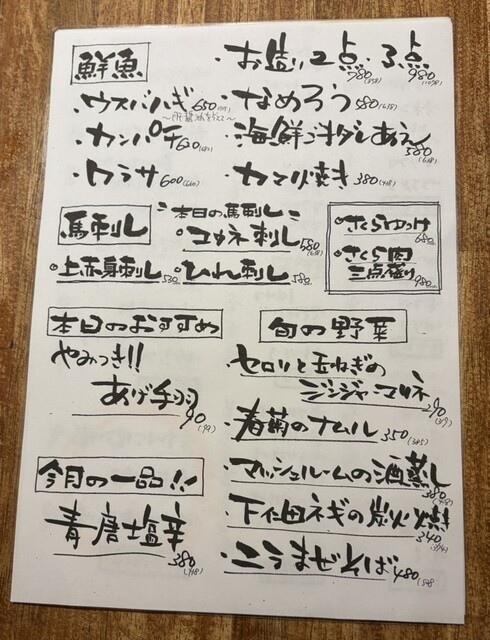 鮮魚
・お造り2点・3点
780(858) 980(1078)
・ウスバハギ 650(715)
〜肝醤油を添えて〜
・なめろう 580(638)
・カンパチ 620(682)
・海鮮ゴマダレあえ 580(638)
・ワラサ 600(660)
・カマ焼き 380(418)
馬刺し
本日の馬刺し
・コウネ刺し 580(638)
・上赤身刺し 530
・ひれ刺し 580
・さくらゆっけ 680
・さくら肉
三点盛り 980
本日のおすすめ
やみつき!!
あげ手羽 90(99)
旬の野菜
・セロリと玉ねぎの
ジンジャーマリネ 290(319)
・春菊のナムル 350(385)
・マッシュルームの酒蒸し 380(418)
・下仁田ネギの炭火焼 340(374)
・ニラまぜそば 480(528)
今月の一品!!
青唐塩辛 380(418)